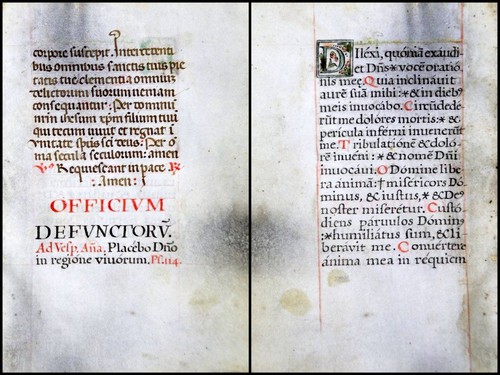 corpore suscepit. Intercetenti
bus omnibus sanctis tuis pie
tatis tue clementia omnium
delictorum suorum veniam
consequantur: Per dominū
nrm iesum xpm filium tuū
qui tecum vivit et regnat ī
unitate spūs scī deus: Per oī
ma secula seculorum: amen
℣ Requiescant in pace ℟
: Amen :
OFFICIUM
DEFUNCTORŪ.
Ad Vesp. Aña. Placébo Dño
in regióne vivorum. Ps. 114.
Diléxi, quóniā exaudi
et Dñs ✶ vocē oratió
nis meę. Quia inclinávit
aurē suā mihi: ✶ & in dieb9
meis invocábo. Circūdedé-
rūt me dolóres mortis: ✶ &
pericula inférni invenerūt
me. Tribulatiónē & doló
rē invéni: ✶ & nomē Dñi
invocávi. O Dómine líbera
ánimā: † miséricors Dó
minus, & iustus, ✶ & De9
noster miserétur. Custó
diens párvulos Dómin9
: ✶ humiliátus sum, & li
berávit me. Convértere
ánima mea in réquiem